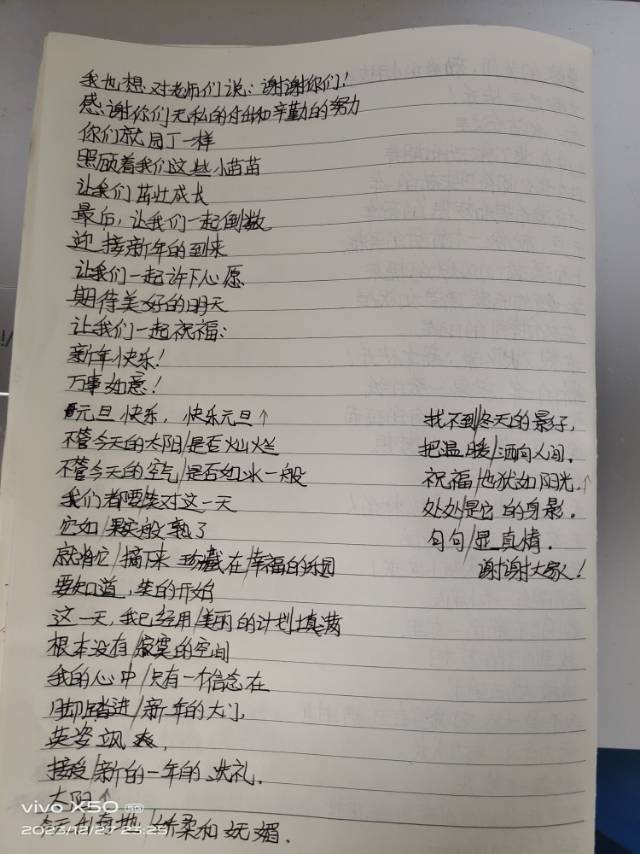 我也想对老师们说：谢谢你们！
感谢你们无私的付出和辛勤的努力
你们就园丁一样
照顾着我们这些小苗苗
让我们茁壮成长
最后，让我们一起倒数
迎接新年的到来
让我们一起许下心愿
期待美好的明天
让我们一起祝福：
新年快乐！
万事如意！
元旦快乐，快乐元旦↑
不管今天的太阳/是否灿烂
不管今天的空气/是否如冰一般
我们都要笑对这一天
它如/果实般熟了
就将它/摘下来 珍藏在/幸福的乐园
要知道，笑的开始
这一天，我已经用/美丽的计划填满
根本没有/寂寞的空间
我的心中/只有一个信念在
脚踏进/新年的大门，
英姿飒爽，
接受/新的一年的洗礼.
太阳↑
今天出奇地/娇柔和妩媚.
找不到/冬天的影子，
把温暖/洒向人间.
祝福/也犹如阳光.↑
处处/是它的身影.
句句/显真情.
谢谢大家！
vivo X50 5G
2023/12/27 23:23